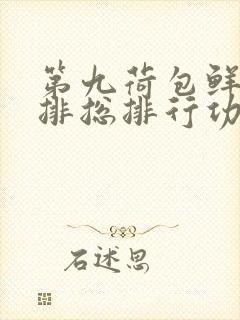 第九荷包鲜
排总排行功
石述思